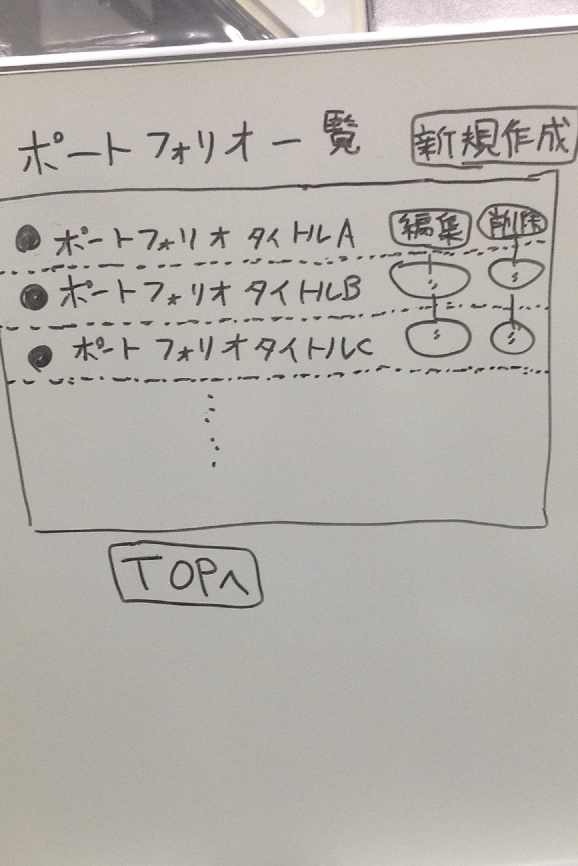 ポートフォリオ一覧 新規作成
ポートフォリオタイトルA 編集 削除
ポートフォリオタイトルB 〃 〃
ポートフォリオタイトルC 〃 〃
TOPへ